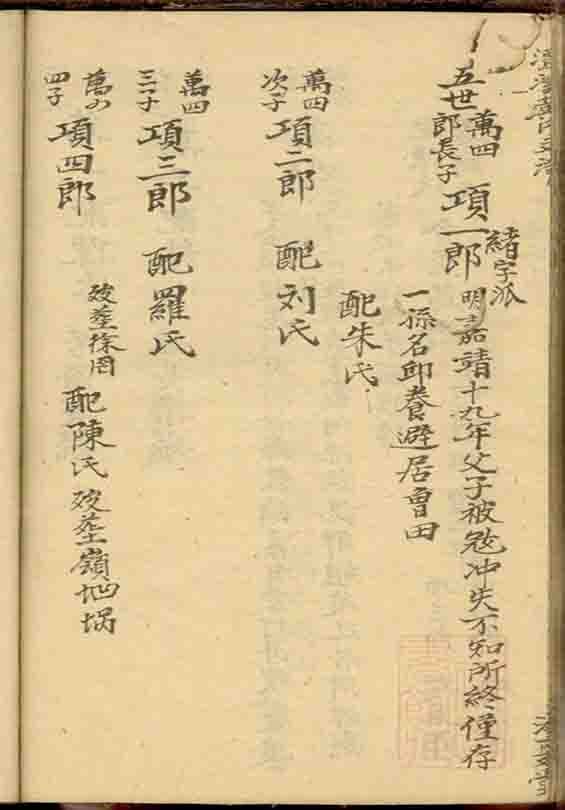 五世 萬四郎長子 項一郎 緒字派
明嘉靖十九年父子被冦冲失不知所終僅存
一孫名卯養避居會田
配朱氏
萬四次子 項二郎 配刘氏
萬四三子 項三郎 配羅氏
萬四四子 項四郎 歿塟徐岡 配陳氏 歿塟嶺